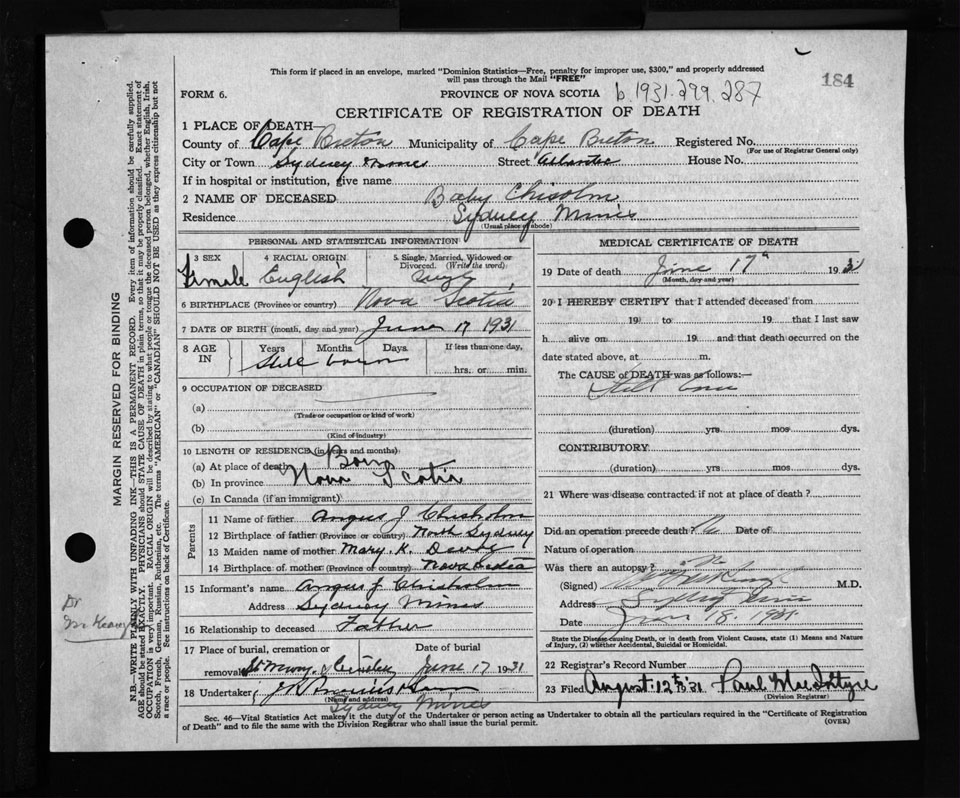 This form if placed in an envelope, marked "Dominion Statistics—Free, penalty for improper use, $300," and properly addressed
will pass through the Mail "FREE"
184
FORM 6.
PROVINCE OF NOVA SCOTIA b.1931.299.287
CERTIFICATE OF REGISTRATION OF DEATH
1 PLACE OF DEATH—
County of Cape Breton Municipality of Cape Breton Registered No.
(For use of Registrar General only)
City or Town Sydney Mines Street Atlantic House No.
If in hospital or institution, give name
2 NAME OF DECEASED Baby Chisolm
Residence Sydney Mines
(Usual place of abode)
PERSONAL AND STATISTICAL INFORMATION
3 SEX 4 RACIAL ORIGIN 5 Single, Married, Widowed or
Divorced. (Write the word)
Female English
6 BIRTHPLACE (Province or country) Nova Scotia
7 DATE OF BIRTH (month, day and year) June 17 1931
8 AGE IN Years Months Days If less than one day,
Still born hrs. or min.
9 OCCUPATION OF DECEASED
(a)
(Trade or occupation or kind of work)
(b)
(Kind of industry)
10 LENGTH OF RESIDENCE (in years and months)
(a) At place of death Born
(b) In province Nova Scotia
(c) In Canada (if an immigrant)
Parents
11 Name of father Angus J Chisholm
12 Birthplace of father (Province or country) North Sydney
13 Maiden name of mother Mary. K.
14 Birthplace of mother (Province or country) Nova Scotia
15 Informant's name Angus J Chisholm
Address Sydney Mines
16 Relationship to deceased Father
17 Place of burial, cremation or Date of burial
removal June 17 1931
18 Undertaker
(Name and address)
Sydney Mines
MEDICAL CERTIFICATE OF DEATH
19 Date of death June 17th 1931
(Month, day and year)
20 I HEREBY CERTIFY that I attended deceased from
19 to 19 that I last saw
h alive on 19 and that death occurred on the
date stated above, at m.
The CAUSE of DEATH was as follows:—
Still born
(duration) yrs mos dys.
CONTRIBUTORY
(duration) yrs mos dys.
21 Where was disease contracted if not at place of death?
Did an operation precede death? No Date of
Nature of operation
Was there an autopsy? No
(Signed) M.D.
Address Sydney Mines
Date June 18. 1931
State the Disease causing Death, or in death from Violent Causes, state (1) Means and Nature
of Injury, (2) whether Accidental, Suicidal or Homicidal.
22 Registrar's Record Number
23 Filed August 12th 31 Paul MacIntyre
(Division Registrar)
Sec. 46—Vital Statistics Act makes it the duty of the Undertaker or person acting as Undertaker to obtain all the particulars required in the "Certificate of Registration
of Death" and to file the same with the Division Registrar who shall issue the burial permit. (OVER)
MARGIN RESERVED FOR BINDING
N.B.—WRITE PLAINLY WITH UNFADING INK—THIS IS A PERMANENT RECORD. Every item of information should be carefully supplied.
AGE should be stated EXACTLY. PHYSICIANS should STATE CAUSE OF DEATH in plain terms, so that it may be properly classified. Exact statement of
OCCUPATION is very important. RACIAL ORIGIN will be described by stating to what people or tongue the deceased person belonged, whether English, Irish,
Scotch, French, German, Russian, Ruthenian, etc. The terms "AMERICAN" or "CANADIAN" SHOULD NOT BE USED as they express citizenship but not
a race or people. See instructions on back of Certificate.
Dr